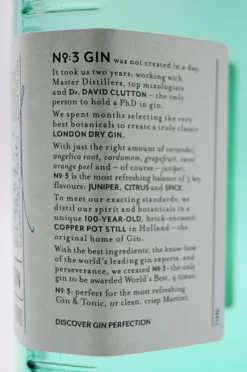 Nº: 3 GIN was not created in a day.
It took us two years; working with
Master Distillers, top mixologists
and Dr. DAVID CLUTTON – the only
person to hold a PhD in gin.
We spent months selecting the very
best botanicals to create a truly classic
LONDON DRY GIN.
With just the right amount of coriander,
angelica root, cardamom, grapefruit, sweet
orange peel and – of course – juniper,
Nº 3 is the most refreshing balance of 3 key
flavours: JUNIPER, CITRUS and SPICE.
To meet our exacting standards, we
distil our spirit and botanicals in a
unique 100-YEAR-OLD, brick-encased,
COPPER POT STILL in Holland – the
original home of Gin.
With the best ingredients, the know-how
of the world's leading gin experts, and
perseverance, we created Nº 3: the only
gin to be awarded World's Best, 4 times.
Nº: 3: perfect for the most refreshing
Gin & Tonic, or clean, crisp Martini.
DISCOVER GIN PERFECTION